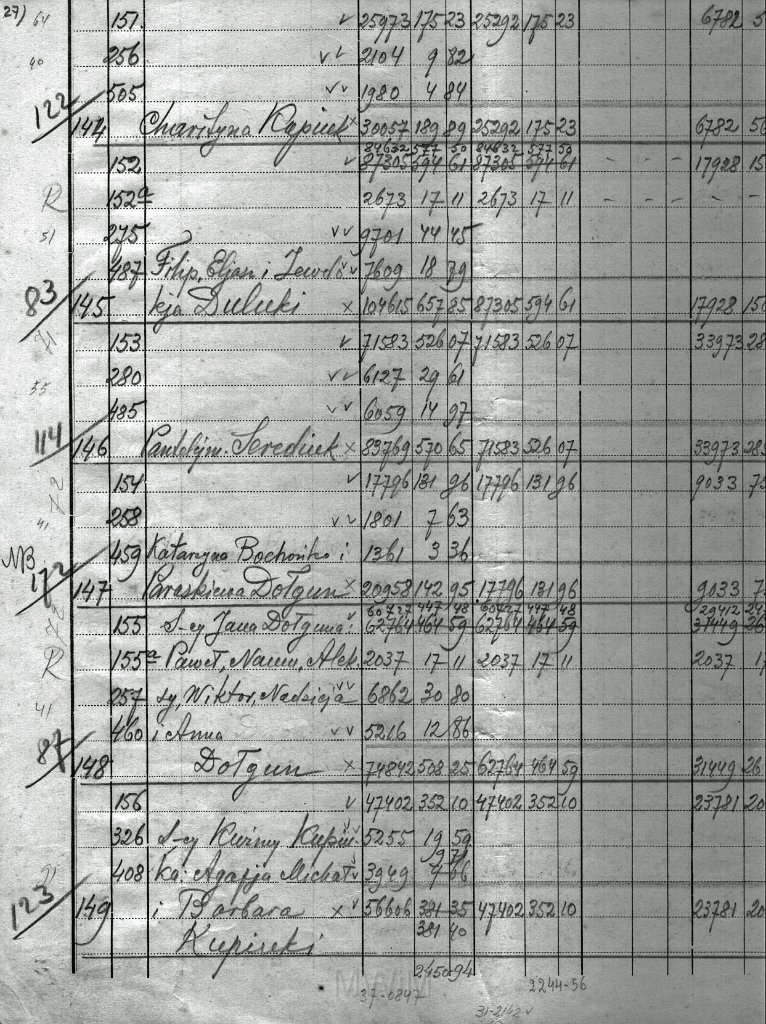 27) 64 151. v 25973 175 23 25292 175 23 6782 5
40 256 v v 2104 9 82
505 v v 1980 4 84
122 144 Charityna Kupiuk x 30057 189 89 25292 175 23 6782 56
84632 577 50 84632 577 50
152 v 87305 594 61 87305 594 61 - - - - 17928 15
R 152a 2673 17 11 2673 17 11 - - - -
51 275 v v 9701 44 45
487 Filip, Eljasz i Jewdo v 7609 18 79
83 145 kja Duluki x 104615 657 85 87305 594 61 17928 150
71 153 v 71583 526 07 71583 526 07 33973 28
55 280 v v 6127 29 61
485 v v 6059 14 97
114 146 Pantelejm. Serediuk x 83769 570 65 71583 526 07 33973 283
72 154 v 17796 131 96 17796 131 96 9033 75
41 258 v v 1801 7 63
NB 459 Katarzyna Bochońko i 1361 3 36
172 147 Paraskiewa Dołgun x 20958 142 95 17796 131 96 9033 7
60727 447 48 60727 447 48 29412
72 155 S-cy Jana Dołguna: v 62764 464 59 62764 464 59 31449 26
R 155a Paweł, Naum, Alek 2037 17 11 2037 17 11 2037 17
41 257 sy, Wiktor, Nadzieja v v 6862 30 80
460 i Anna v v 5216 12 86
87 148 Dołgun x 74842 508 25 62764 464 59 31449 26
156 v 47402 352 10 47402 352 10 23781 20
326 S-cy Kuźmy Kupiu 5255 19 59
408 ka: Agapja Michał v 3949 9 66
123 149 i Barbara x v 56606 381 35 47402 352 10 23781 20
381 40
Kupiuki
2450 94
37-0847 2244-56
31-2142 v